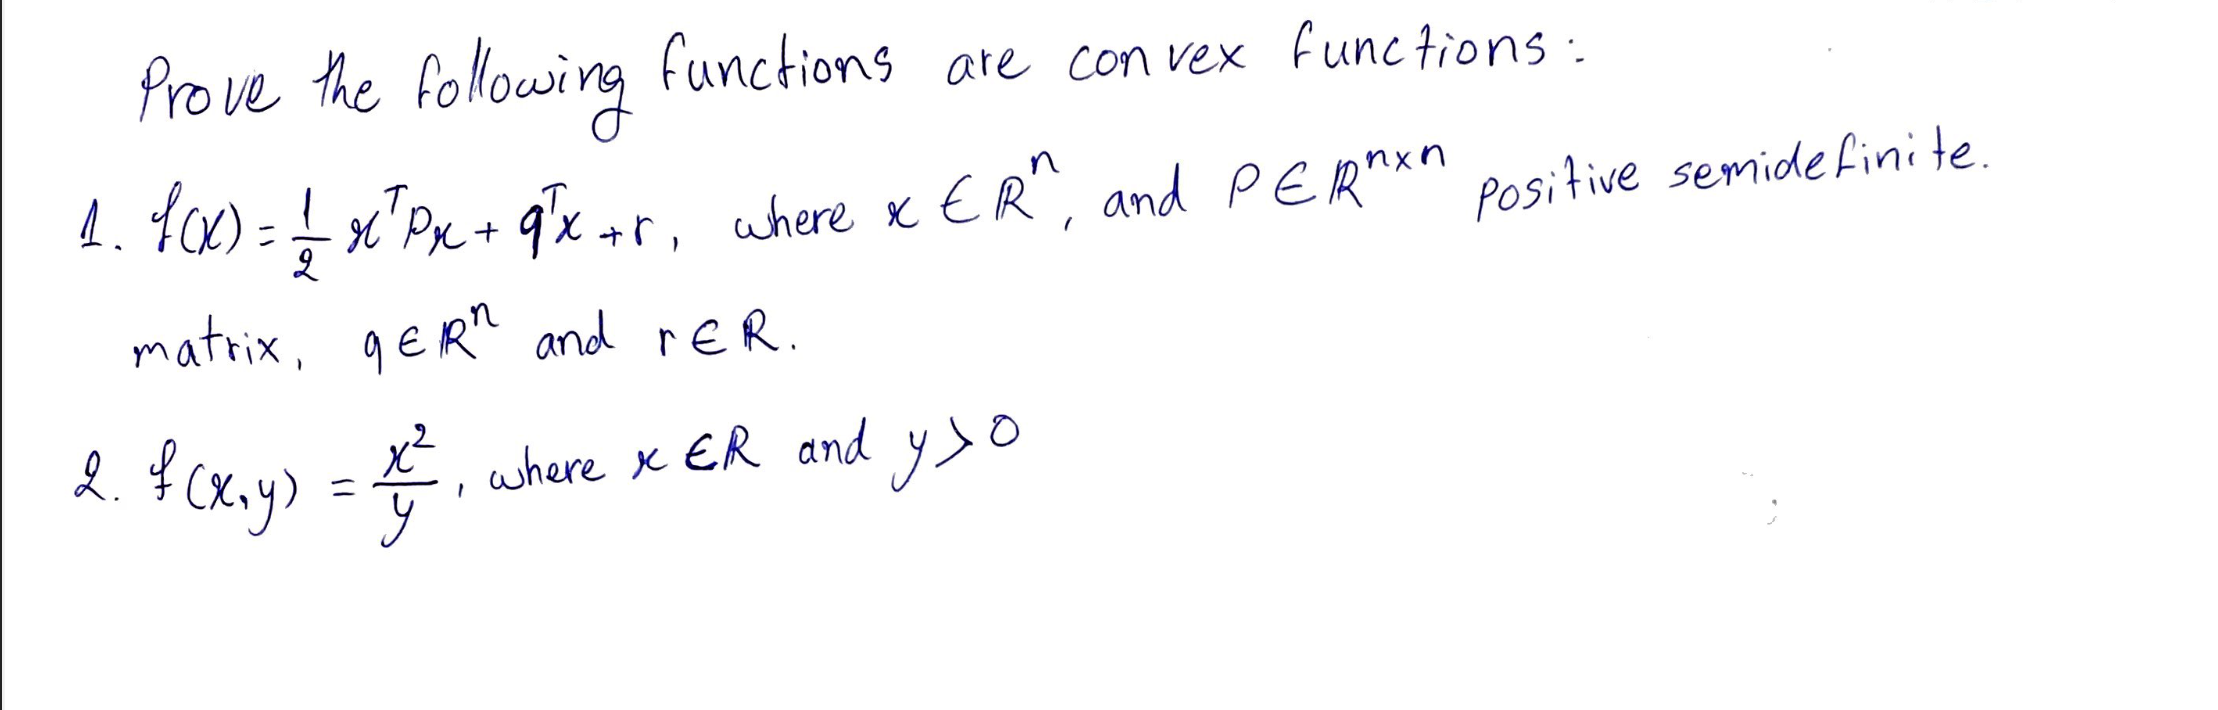 Prove the following functions are convex functions:
1. f(x) = 1/2 xᵀPx + qᵀx + r, where x ∈ ℝⁿ, and P ∈ ℝⁿˣⁿ positive semidefinite.
matrix, q ∈ ℝⁿ and r ∈ ℝ.
2. f(x,y) = x²/y, where x ∈ ℝ and y > 0